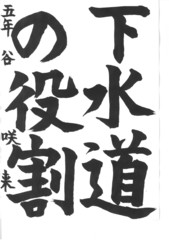 下水道
の役割
五年 谷 咲来